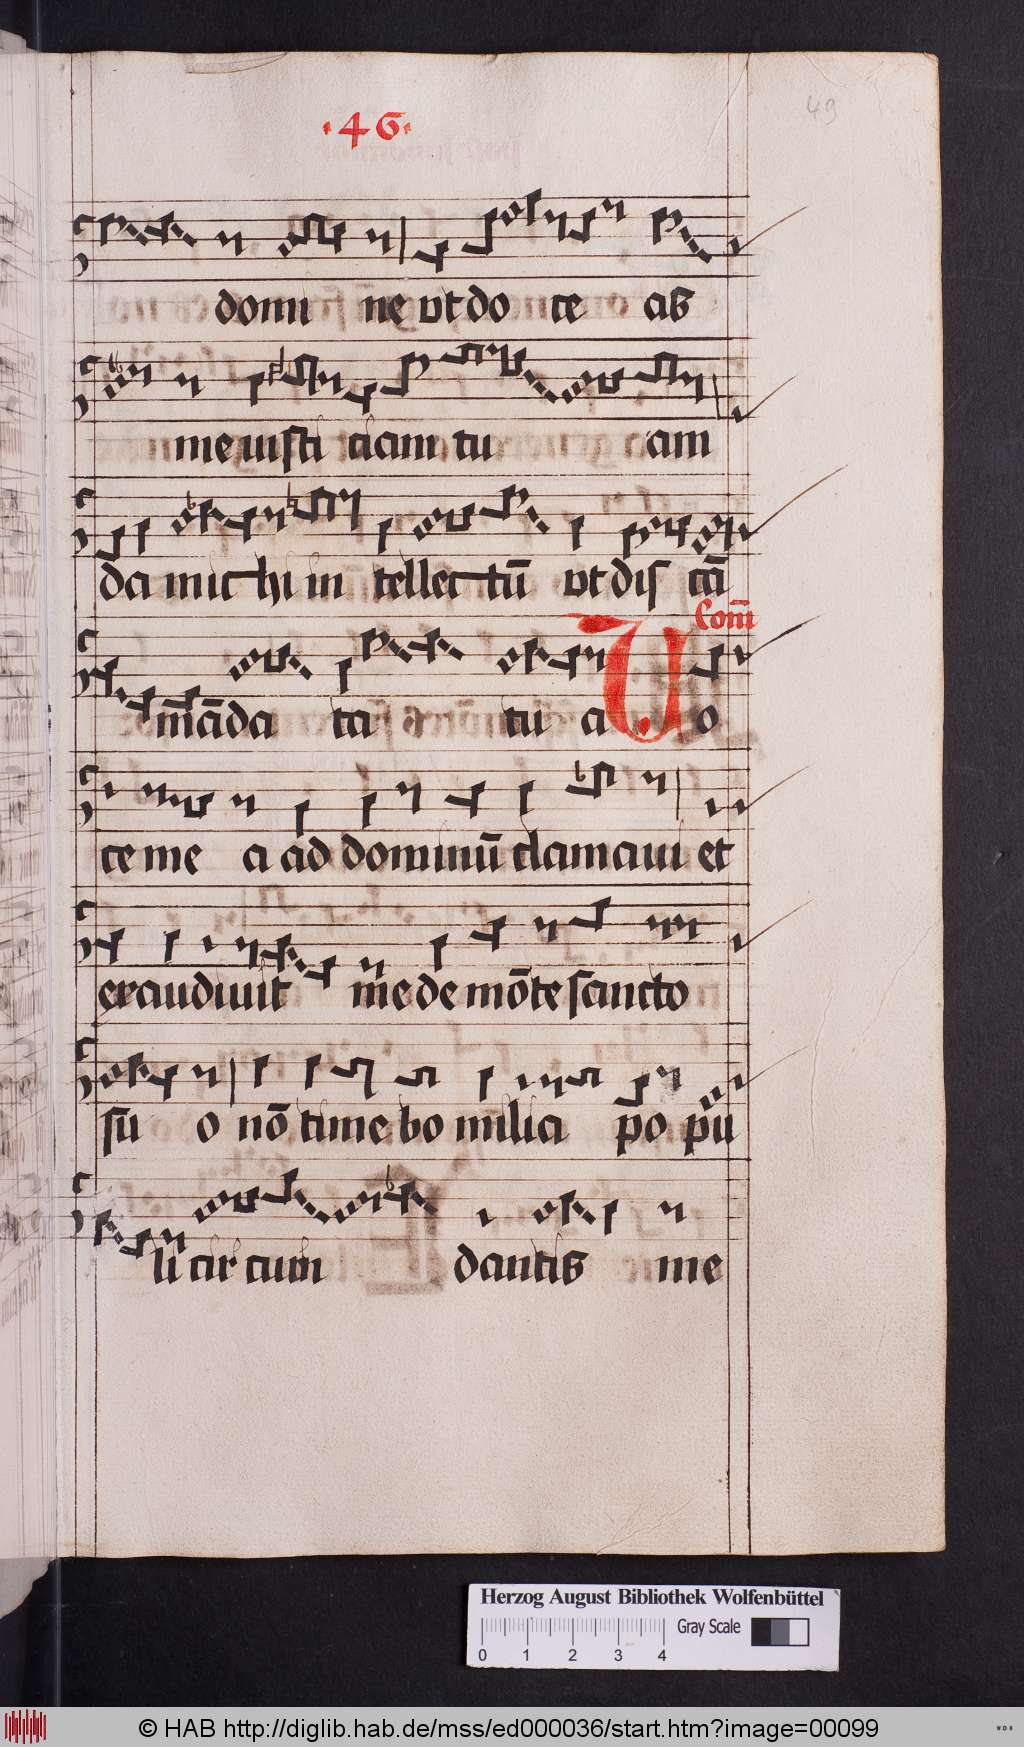 ·46·
49
domi ne vt do ce as
me iusti ciam tu am
da mic hi in tellec tū vt dis cā
Com̄
m̄ādata tu a Uo
ce mea ad dominū clamaui et
exaudiuit me de mōte sancto
suo nō timebo milia popu
li cir cum dantis me
Herzog August Bibliothek Wolfenbüttel
0 1 2 3 4 Gray Scale
© HAB http://diglib.hab.de/mss/ed000036/start.htm?image=00099